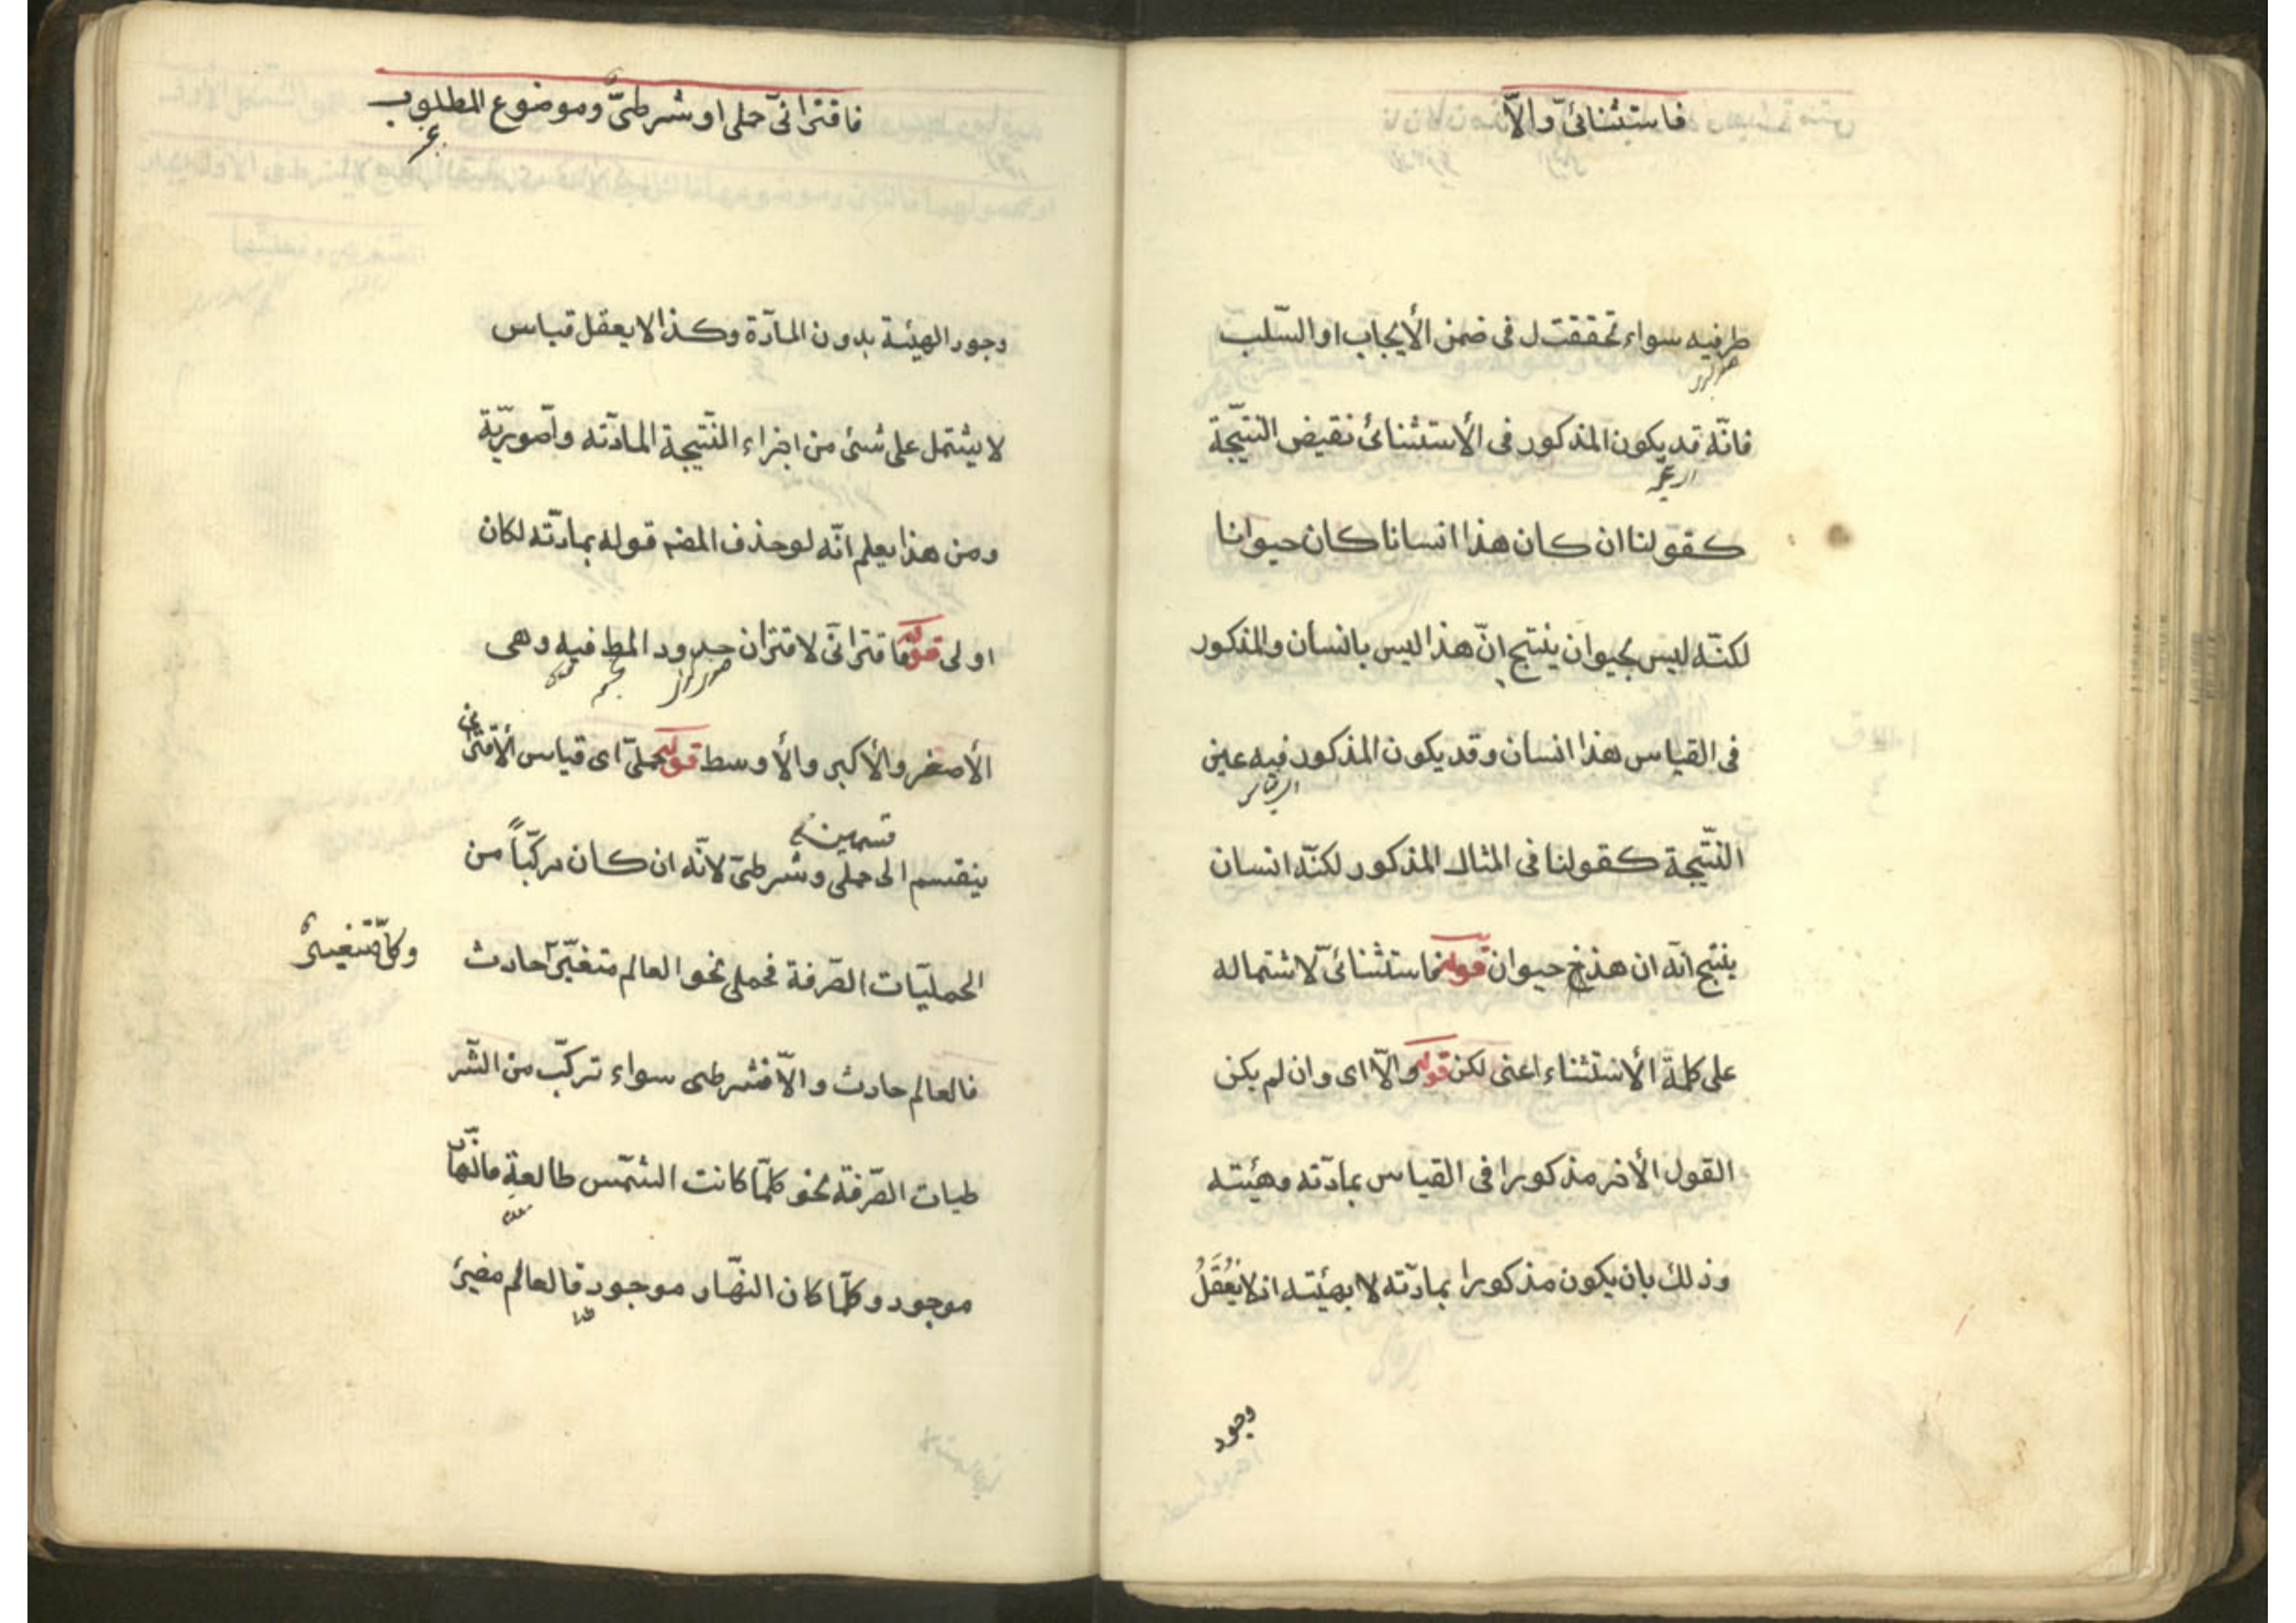 فاستثنائیّ والاّ
طرفيه سواء تحققت ل فى ضمن الأيجاب او السّلب
فانّه قد يكون المذكور فى الأستثنائى نقيض النّتيجة
كقولنا ان كان هذا انسانا كان حيوانا
لكنّه ليس بحيوان ينتج انّ هذا ليس بانسان والمذكور
فى القياس هذا انسان وقد يكون المذكور فيه عين
النّتيجة كقولنا فى المثال المذكور لكنّه انسان
ينتج انّه ان هذا حيوان قوله فاستثنائىّ لاشتماله
على كلمة الأستثناء اعنى لكن قوله والاّ اى وان لم يكن
القول الأخر مذكورا فى القياس بمادّته وهيئته
وذلك بان يكون مذكورا بمادّته لا بهيئته اذ لا يُعْقَلُ
وجود
فاقترانىّ حملى او شرطىّ وموضوع المطلوب
وجود الهيئة بدون المادّة وكذا لا يعقل قياس
لا يشتمل على شئ من اجزاء النّتيجة المادّته واصوريّة
ومن هذا يعلم انّه لو حذف المضه قوله بمادّته لكان
اولى قوله فاقترانىّ لاقتران حدود المط فيه وهى
الأصغر والأكبر والأوسط قوله حملىّ اى قياس الأقترانى
قسمين
ينقسم الى حملى وشرطىّ لانّه ان كان مركّباً من
الحمليّات الصّرفة فحملى نحو العالم متغيّر حادث
وكلّ متغيّر
فالعالم حادث والاّ فشرطى سواء تركّب من الشّر
طيات الصّرفة نحو كلّما كانت الشّمس طالعة فالنّهار
موجود وكلّما كان النّهار موجود فالعالم مضئ